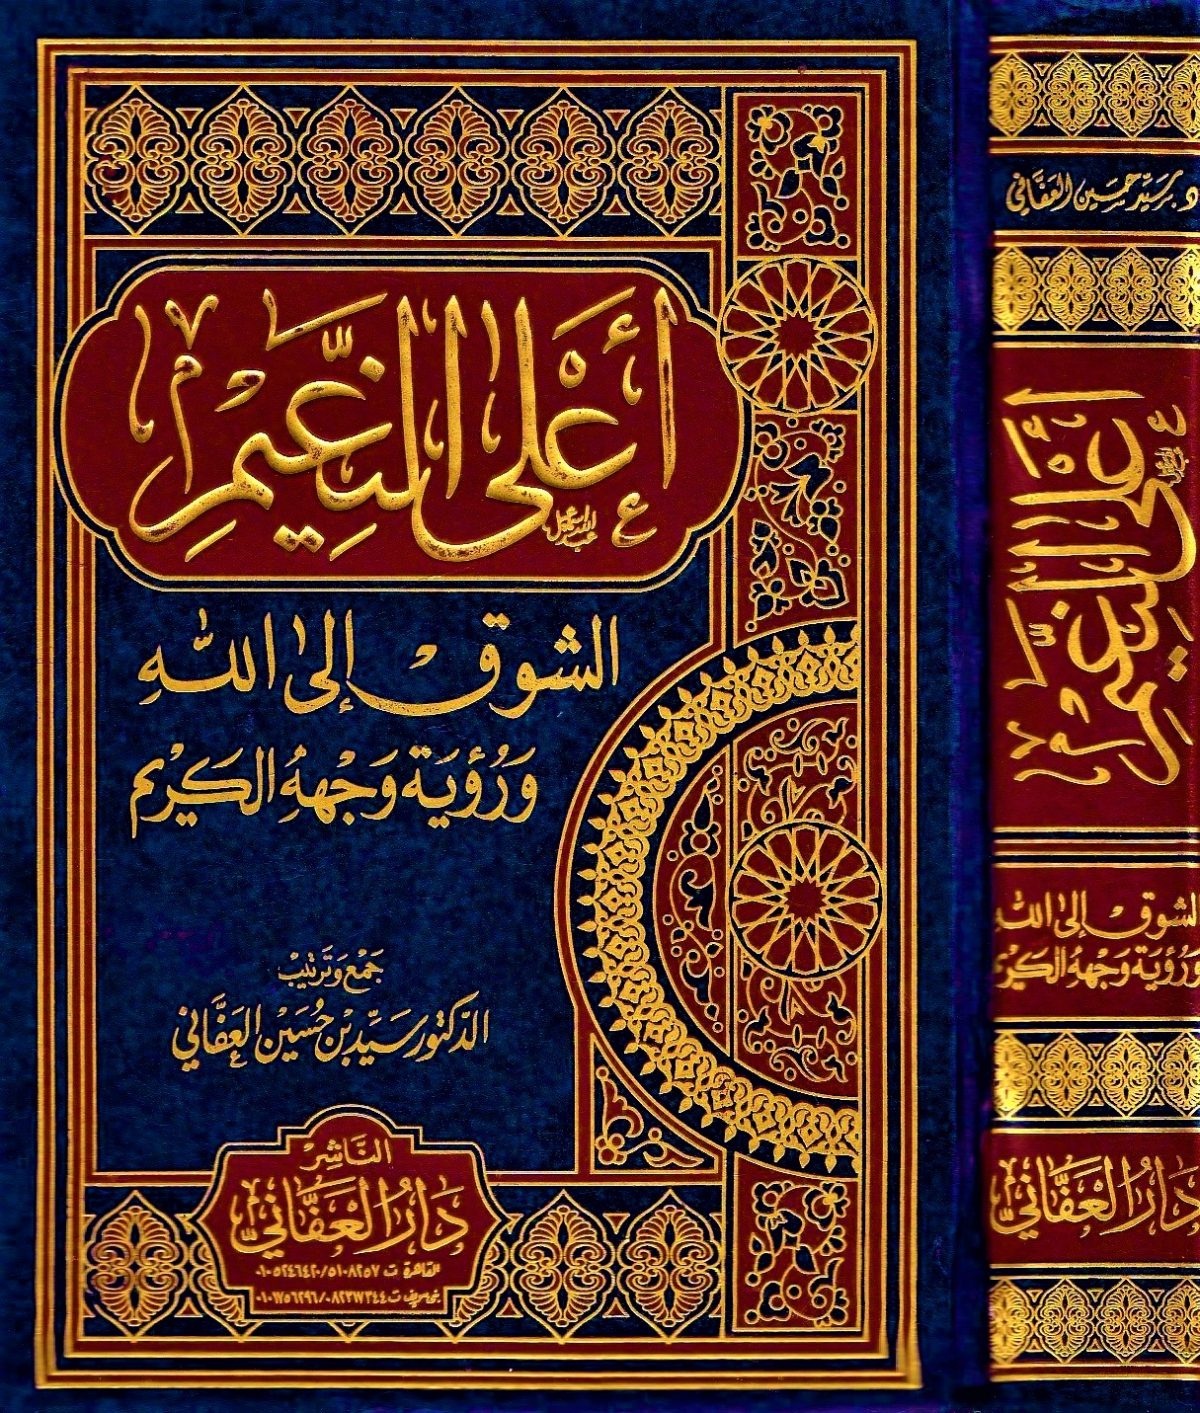 أَعْلَى النَّعِيمِ
الشوق إلى الله
وَرُؤْيَة وَجْههِ الكَرِيم
جَمْع وَتَرتيب
الدكتور سَيِّد بْن حُسَيْن العَفَّاني
النَّاشِر
دَارُ العَفَّانِي
القاهرة ت ٥١٠٨٢٥٧/٠١٠٥٢٤٦٤٢٠
د. سَيِّد حسَين العَفَّاني
أَعْلَى النَّعِيمِ
الشوق إلى الله
وَرُؤْيَة وَجْههِ الكَرِيم
دَارُ العَفَّانِي